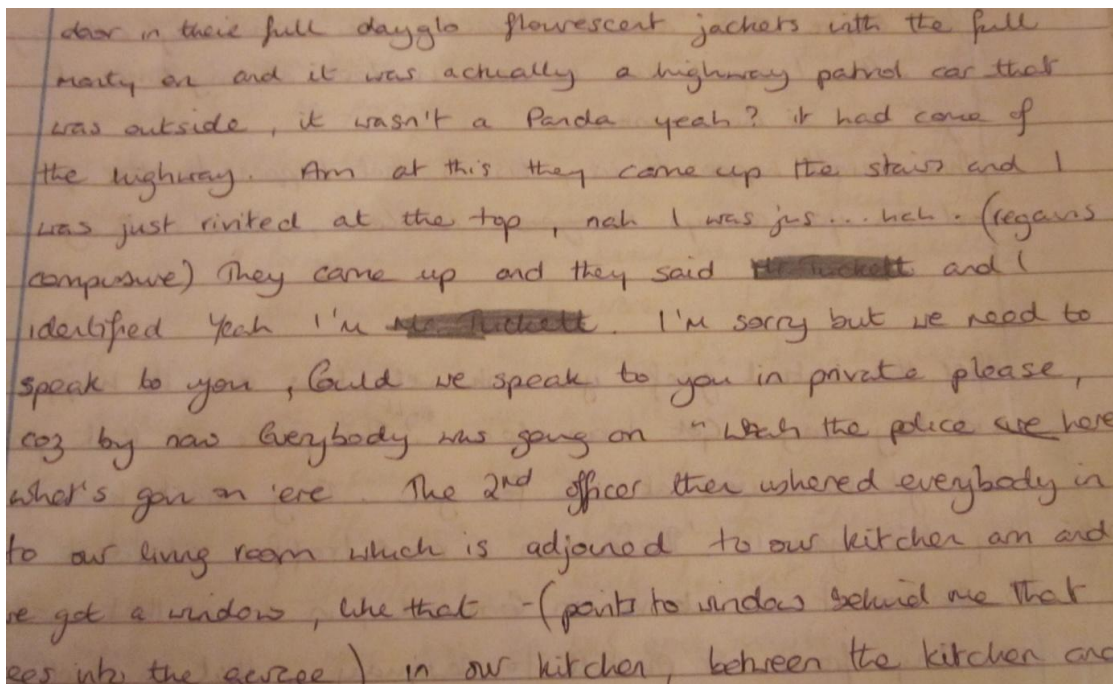 door in their full dayglo flourescent jackets with the full
monty on and it was actually a highway patrol car that
was outside, it wasn't a Panda yeah? it had come of
the highway. Am at this they come up the stairs and I
was just rivited at the top, nah I was jus... heh. (regains
composure) They came up and they said and I
identified Yeah I'm . I'm sorry but we need to
speak to you, Could we speak to you in private please,
coz by now Everybody was going on " the police are here
what's gon on 'ere. The 2nd officer then ushered everybody in
to our living room which is adjoined to our kitchen am and
we got a window, like that - (points to window behind me that
the ) in our kitchen, between the kitchen and